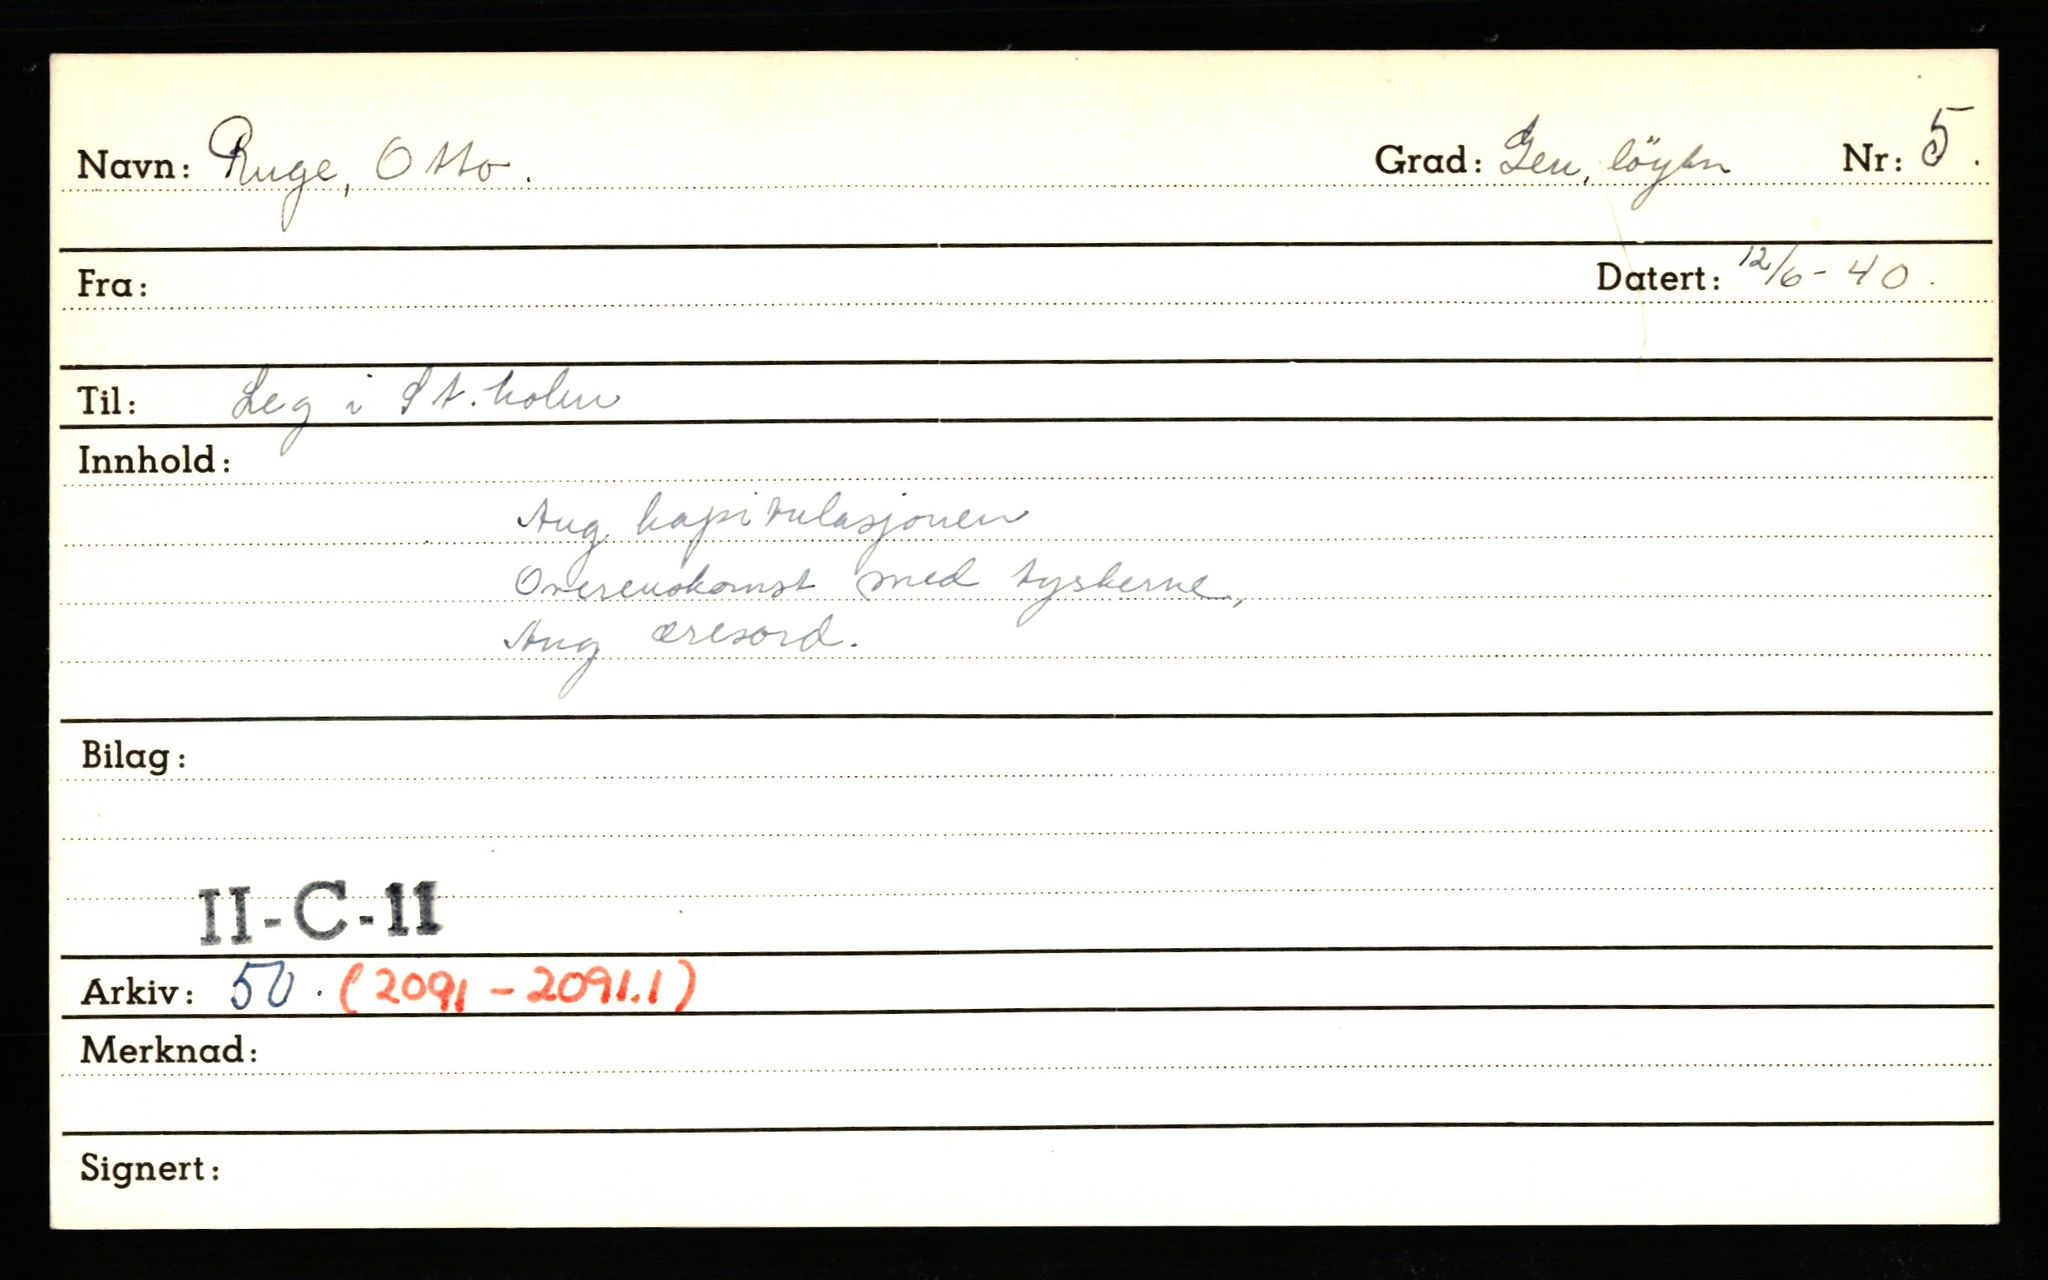 Navn: Ruge, Otto. Grad: Gen, löytn Nr: 5.
Fra: Datert: 12/6-40.
Til: Leg i St.holm
Innhold:
Ang kapitulasjonen
Overenskomst med tyskerne,
Ang æresord.
Bilag:
II-C-11
Arkiv: 50. (2091-2091.1)
Merknad:
Signert: